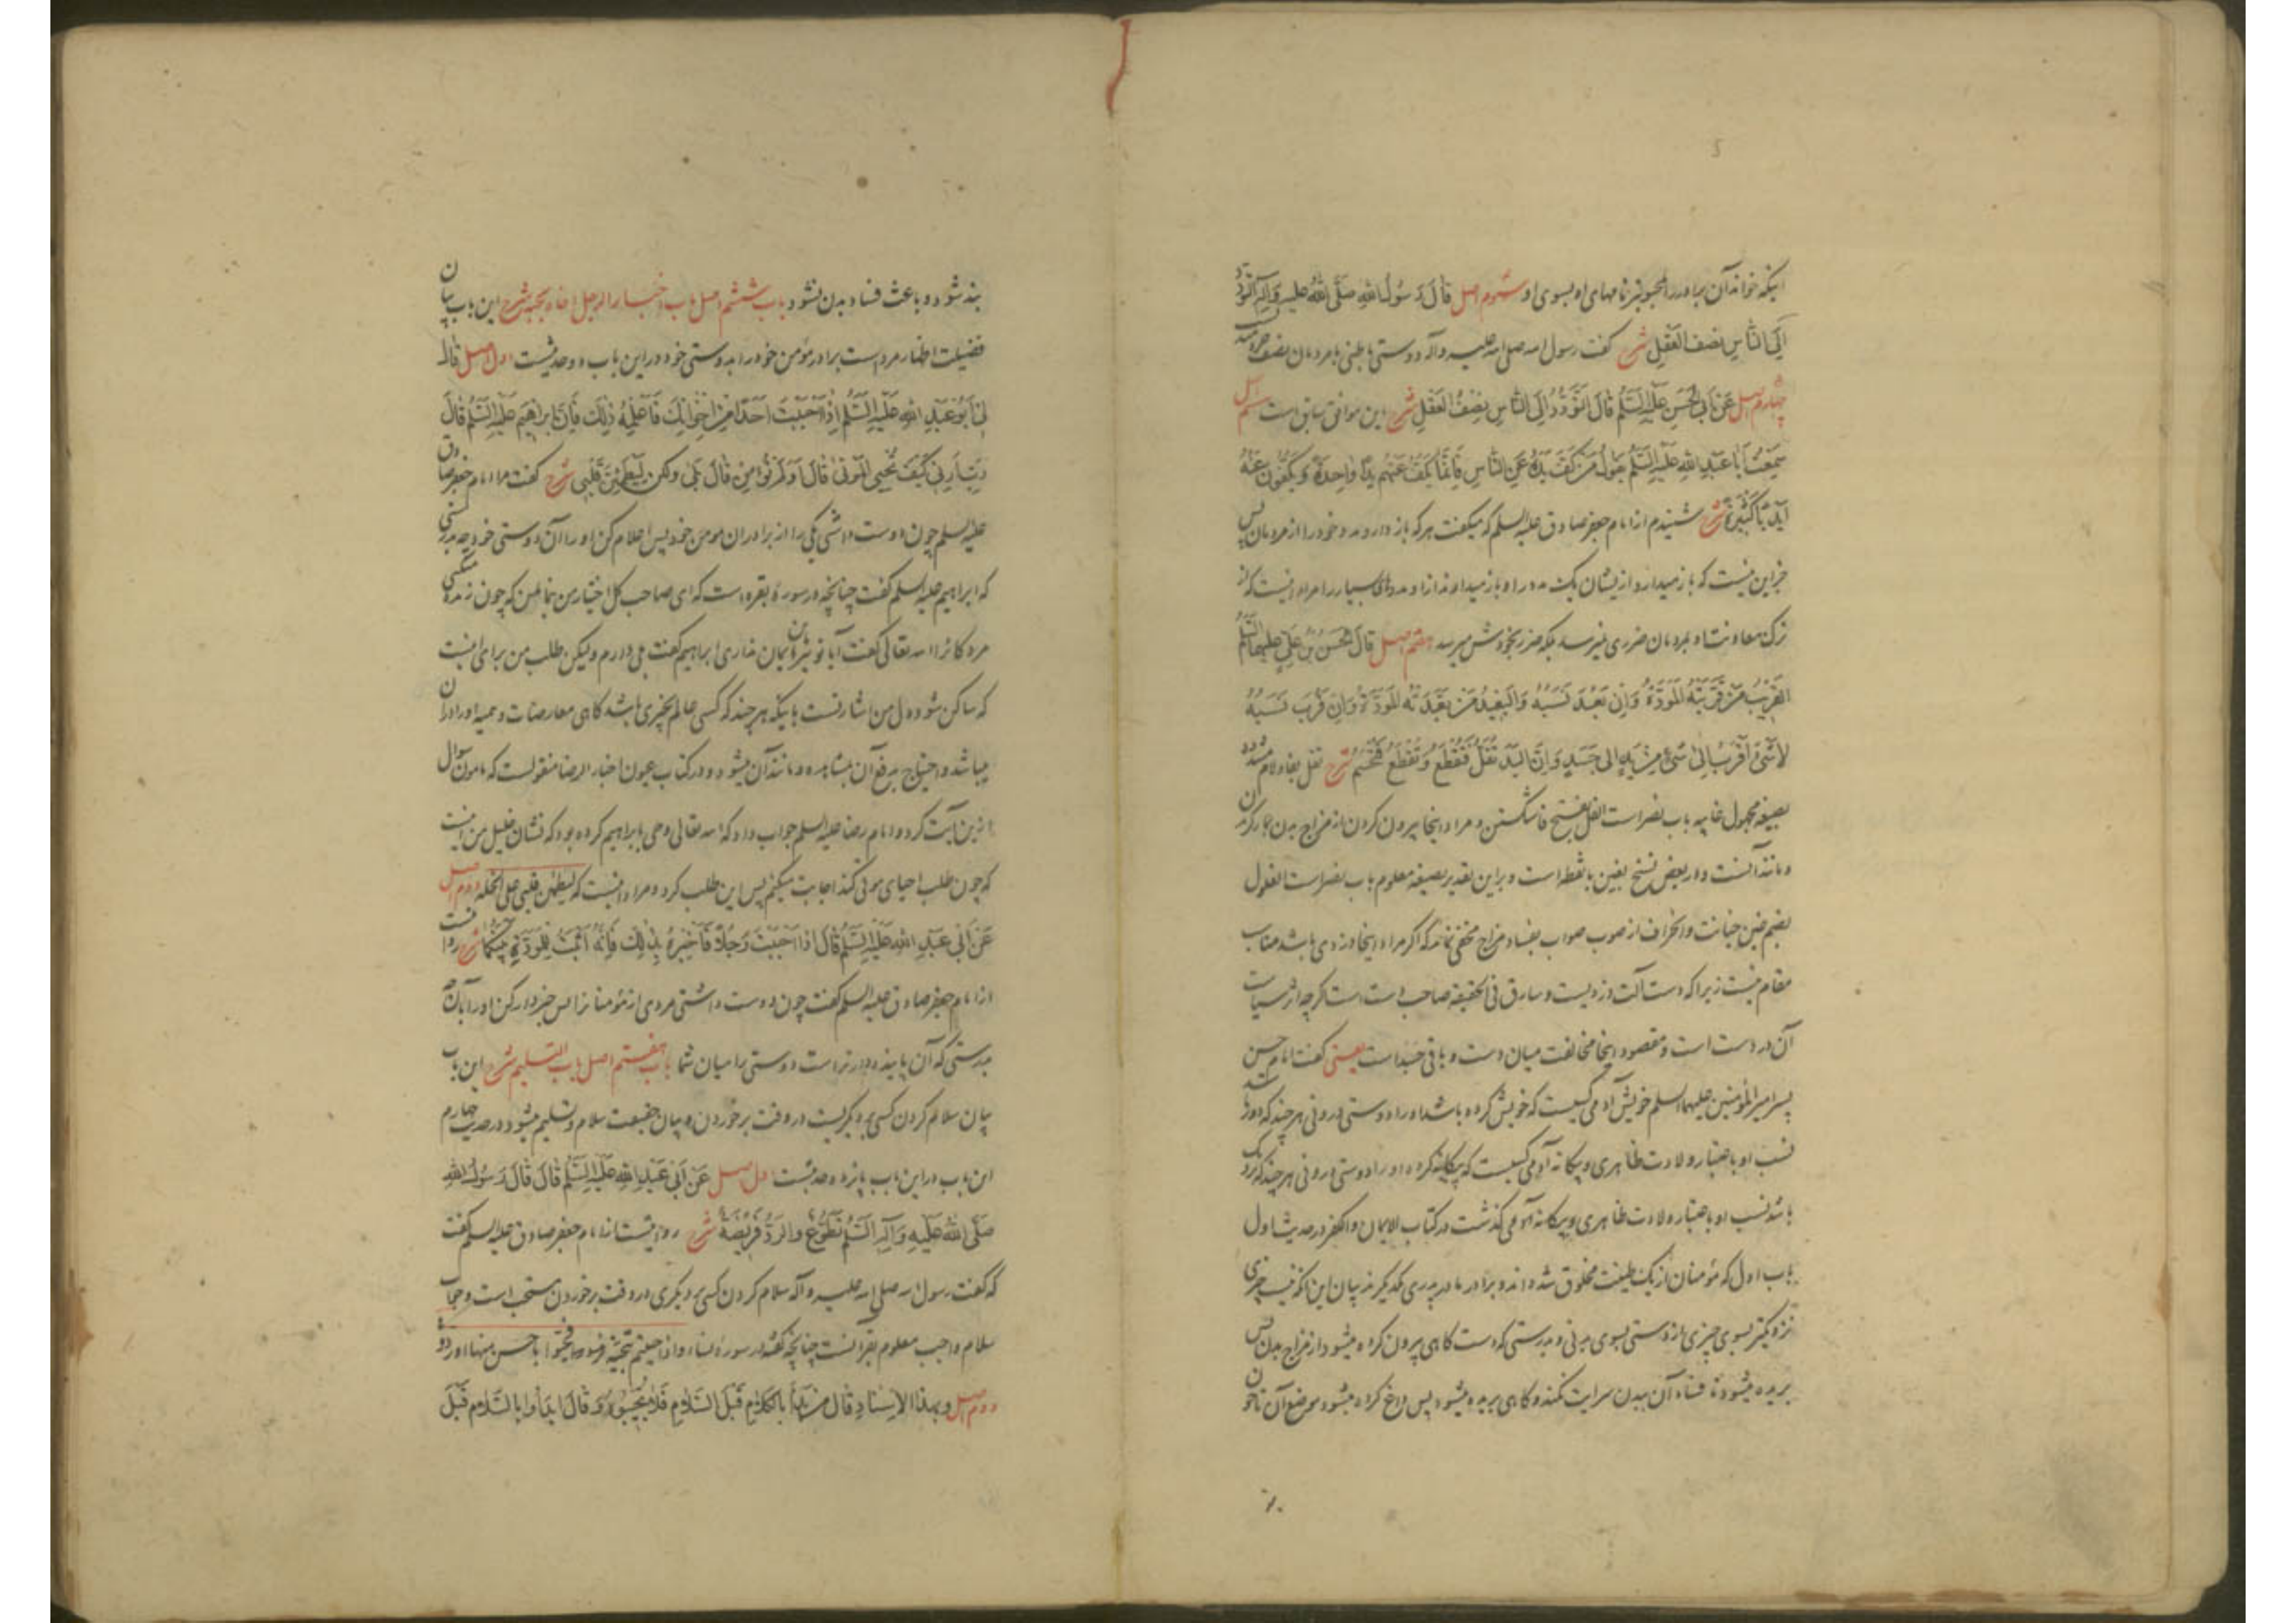 اینکه خواند آن برادر را محبوبترین نامهای او بسوی او سیوم اصل قَالَ رَسُولُ اللهِ صَلَّى اللهُ عَلَيْهِ وَآلِهِ التَّوَدُّدُ
إِلَى النَّاسِ نِصْفُ الْعَقْلِ شرح گفت رسول الله صلی الله علیه وآله دوستی باطنی با مردمان نصف خردمندیست
چهارم اصل عَنْ أَبِي الْحَسَنِ عَلَيْهِ السَّلَمُ قَالَ التَّوَدُّدُ إِلَى النَّاسِ نِصْفُ الْعَقْلِ شرح این موافق سابق است ششم اصل
سَمِعْتُ أَبَا عَبْدِ اللهِ عَلَيْهِ السَّلَمُ يَقُولُ مَنْ كَفَّ يَدَهُ عَنِ النَّاسِ فَإِنَّمَا يَكُفُّ عَنْهُمْ يَدًا وَاحِدَةً وَيَكُفُّونَ عَنْهُ
أَيْدِيًا كَثِيرَةً شرح شنیدم از امام جعفر صادق علیه السلم که میگفت هر که باز دارد مدد خود را از مردمان پس
جز این نیست که باز میدارد از یشان یک مدد را و باز میدارند ازاو مددهای بسیار را مراد اینست که از
ترک معاونت او بمردمان ضرری نمیرسد بلکه ضرر بخودش میرسد هفتم اصل قَالَ الْحَسَنُ بْنُ عَلِيٍّ عَلَيْهِمَا السَّلَمُ
الْقَرِيبُ مَنْ قَرَّبَتْهُ الْمَوَدَّةُ وَإِنْ بَعُدَ نَسَبُهُ وَالْبَعِيدُ مَنْ بَعَّدَتْهُ الْمَوَدَّةُ وَإِنْ قَرُبَ نَسَبُهُ
لَا شَيْءَ أَقْرَبُ إِلَى شَيْءٍ مِنْ يَدٍ إِلَى جَسَدٍ وَإِنَّ الْيَدَ تُفَلُّ فَتُقْطَعُ وَتُقْطَعُ فَتُحْسَمُ شرح تفل بفا ولام مشدده
بصیغه مجهول غایبه باب نصر است الفل بفتح فا شکستن و مراد اینجا بیرون کردن از مزاج بدن بکار کردن
و مانند آنست و در بعض نسخ بغین با نقطه است و براین تقدیر بصیغه معلوم باب نصر است الغلول
بضم غین خیانت و انحراف از صوب صواب بفساد مزاج مخفی نماند که اگر مراد اینجا دزدی باشد مناسب
مقام نیست زیرا که دست آلت دزدیست و سارق فی الحقیقه صاحب دست است گرچه اثر سیاست
آن در دست است و مقصود اینجا مخالفت میان دست و باقی جسد است یعنی گفت امام حسن
پسر امیر المؤمنین علیهما السلم خویش آدمی کسیست که خویش کرده باشد او را دوستی درونی هر چند که دور باشد
نسب او باعتبار ولادت ظاهری و بیگانه آدمی کسیست که بیگانه کرده او را دوستی درونی هر چند که نزدیک
باشد نسب او باعتبار ولادت ظاهری و بیگانه آدمی گذشت در کتاب الایمان والکفر در حدیث اول
باب اول که مؤمنان از یک طینت مخلوق شده اند و برادر مادر پدری یکدیگرند بیان این آنکه نیست چیزی
نزدیکتر بسوی چیزی از دستی بسوی بدنی و بدرستی که دست گاهی بیرون کرده میشود از مزاج بدن پس
بریده میشود تا فساد آن ببدن سرایت نکند و گاهی بریده میشود پس داغ کرده میشود موضع آن تا خون
بند شود و باعث فساد بدن نشود باب ششم اصل باب اخبار الرجل اخاه بحبه شرح این باب بیان
فضیلت اظهار مرد است برادر مؤمن خود را بدوستی خود در این باب دو حدیثست اول اصل قال
لِي أَبُو عَبْدِ اللهِ عَلَيْهِ السَّلَمُ إِذَا أَحْبَبْتَ أَحَدًا مِنْ إِخْوَانِكَ فَأَعْلِمْهُ ذَلِكَ فَإِنَّ إِبْرَاهِيمَ عَلَيْهِ السَّلَمُ قَالَ
رَبِّ أَرِنِي كَيْفَ تُحْيِي الْمَوْتَى قَالَ أَوَلَمْ تُؤْمِنْ قَالَ بَلَى وَلَكِنْ لِيَطْمَئِنَّ قَلْبِي شرح گفت مرا امام جعفر صادق
علیه السلم چون دوست داشتی یکی را از برادران مومن خود پس اعلام کن او را آن دوستی خود چه بدرستی
که ابراهیم علیه السلم گفت چنانچه در سورۀ بقره است که ای صاحب کل اختیار من بنما بمن که چون زنده میکنی
مردگانرا الله تعالی گفت آیا تو نیز ایمان نداری ابراهیم گفت بلی دارم ولیکن طلب من برای اینست
که ساکن شود دل من اشارتست باینکه هر چند که کسی عالم بچیزی باشد گاهی معارضات وهمیه او را در آن
میباشد و احتیاج برفع آن بمشاهده و مانند آن میشود و در کتاب عیون اخبار الرضا منقولست که مامون سوال
ازین آیت کرد و امام رضا علیه السلم جواب داد که الله تعالی وحی بابراهیم کرده بود که نشان خلیل من اینست
که چون طلب احیای موتی کند اجابت میکنم پس این طلب کرد و مراد اینست که لیطمئن قلبی علی الخلة دوم اصل
عَنْ أَبِي عَبْدِ اللهِ عَلَيْهِ السَّلَمُ قَالَ إِذَا أَحْبَبْتَ رَجُلًا فَأَخْبِرْهُ بِذَلِكَ فَإِنَّهُ أَثْبَتُ لِلْمَوَدَّةِ بَيْنَكُمَا شرح روایت
از امام جعفر صادق علیه السلم گفت چون دوست داشتی مردی از مؤمنانرا پس خبردار کن او را بآن چه
بدرستی که آن پاینده دارتر است دوستی را میان شما باب هفتم اصل باب التسلیم شرح این باب
بیان سلام کردن کسی بر دیگریست در وقت برخوردن و بیان حقیقت سلام و تسلیم میشود در حدیث چهارم
این باب در این باب پانزده حدیثست اول اصل عَنْ أَبِي عَبْدِ اللهِ عَلَيْهِ السَّلَمُ قَالَ قَالَ رَسُولُ اللهِ
صَلَّى اللهُ عَلَيْهِ وَآلِهِ السَّلَمُ تَطَوُّعٌ وَالرَّدُّ فَرِيضَةٌ شرح روایتست از امام جعفر صادق علیه السلم گفت
که گفت رسول الله صلی الله علیه وآله سلام کردن کسی بر دیگری در وقت برخوردن مستحب است و جواب
سلام واجب معلوم بقرآنست چنانچه گفته در سورۀ نساء واذا حییتم بتحیة فحیوا باحسن منها او ردوها
دوم اصل وبهذا الاسناد قَالَ مَنْ بَدَأَ بِالْكَلَامِ قَبْلَ السَّلَامِ فَلَا تُجِيبُوهُ وَقَالَ ابْدَأُوا بِالسَّلَامِ قَبْلَ